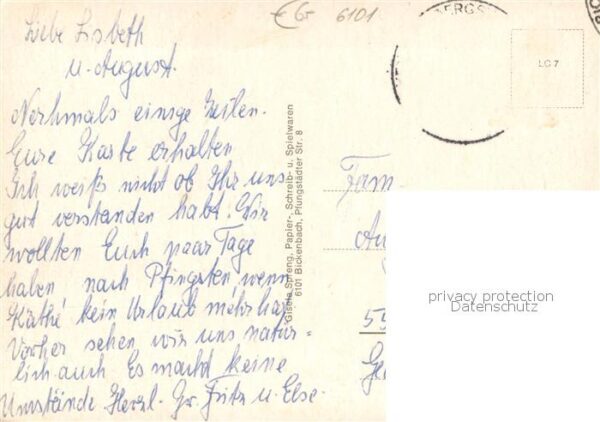 Liebe Lisbeth
u. August.
Nochmals einige Zeilen.
Eure Karte erhalten
Ich weiß nicht ob Ihr uns
gut verstanden habt. Wir
wollten Euch paar Tage
haben nach Pfingsten, wenn
Käthé kein Urlaub mehr hat
Vorher sehen wir uns natür=
lich auch Es macht keine
Umstände. Herzl. Gr. Fritz u. Else.
6101
BERGS
LC 7
Gisela Spreng, Papier-, Schreib- u. Spielwaren
6101 Bickenbach, Pfungstädter Str. 8
Fam
Au
55
privacy protection
Datenschutz